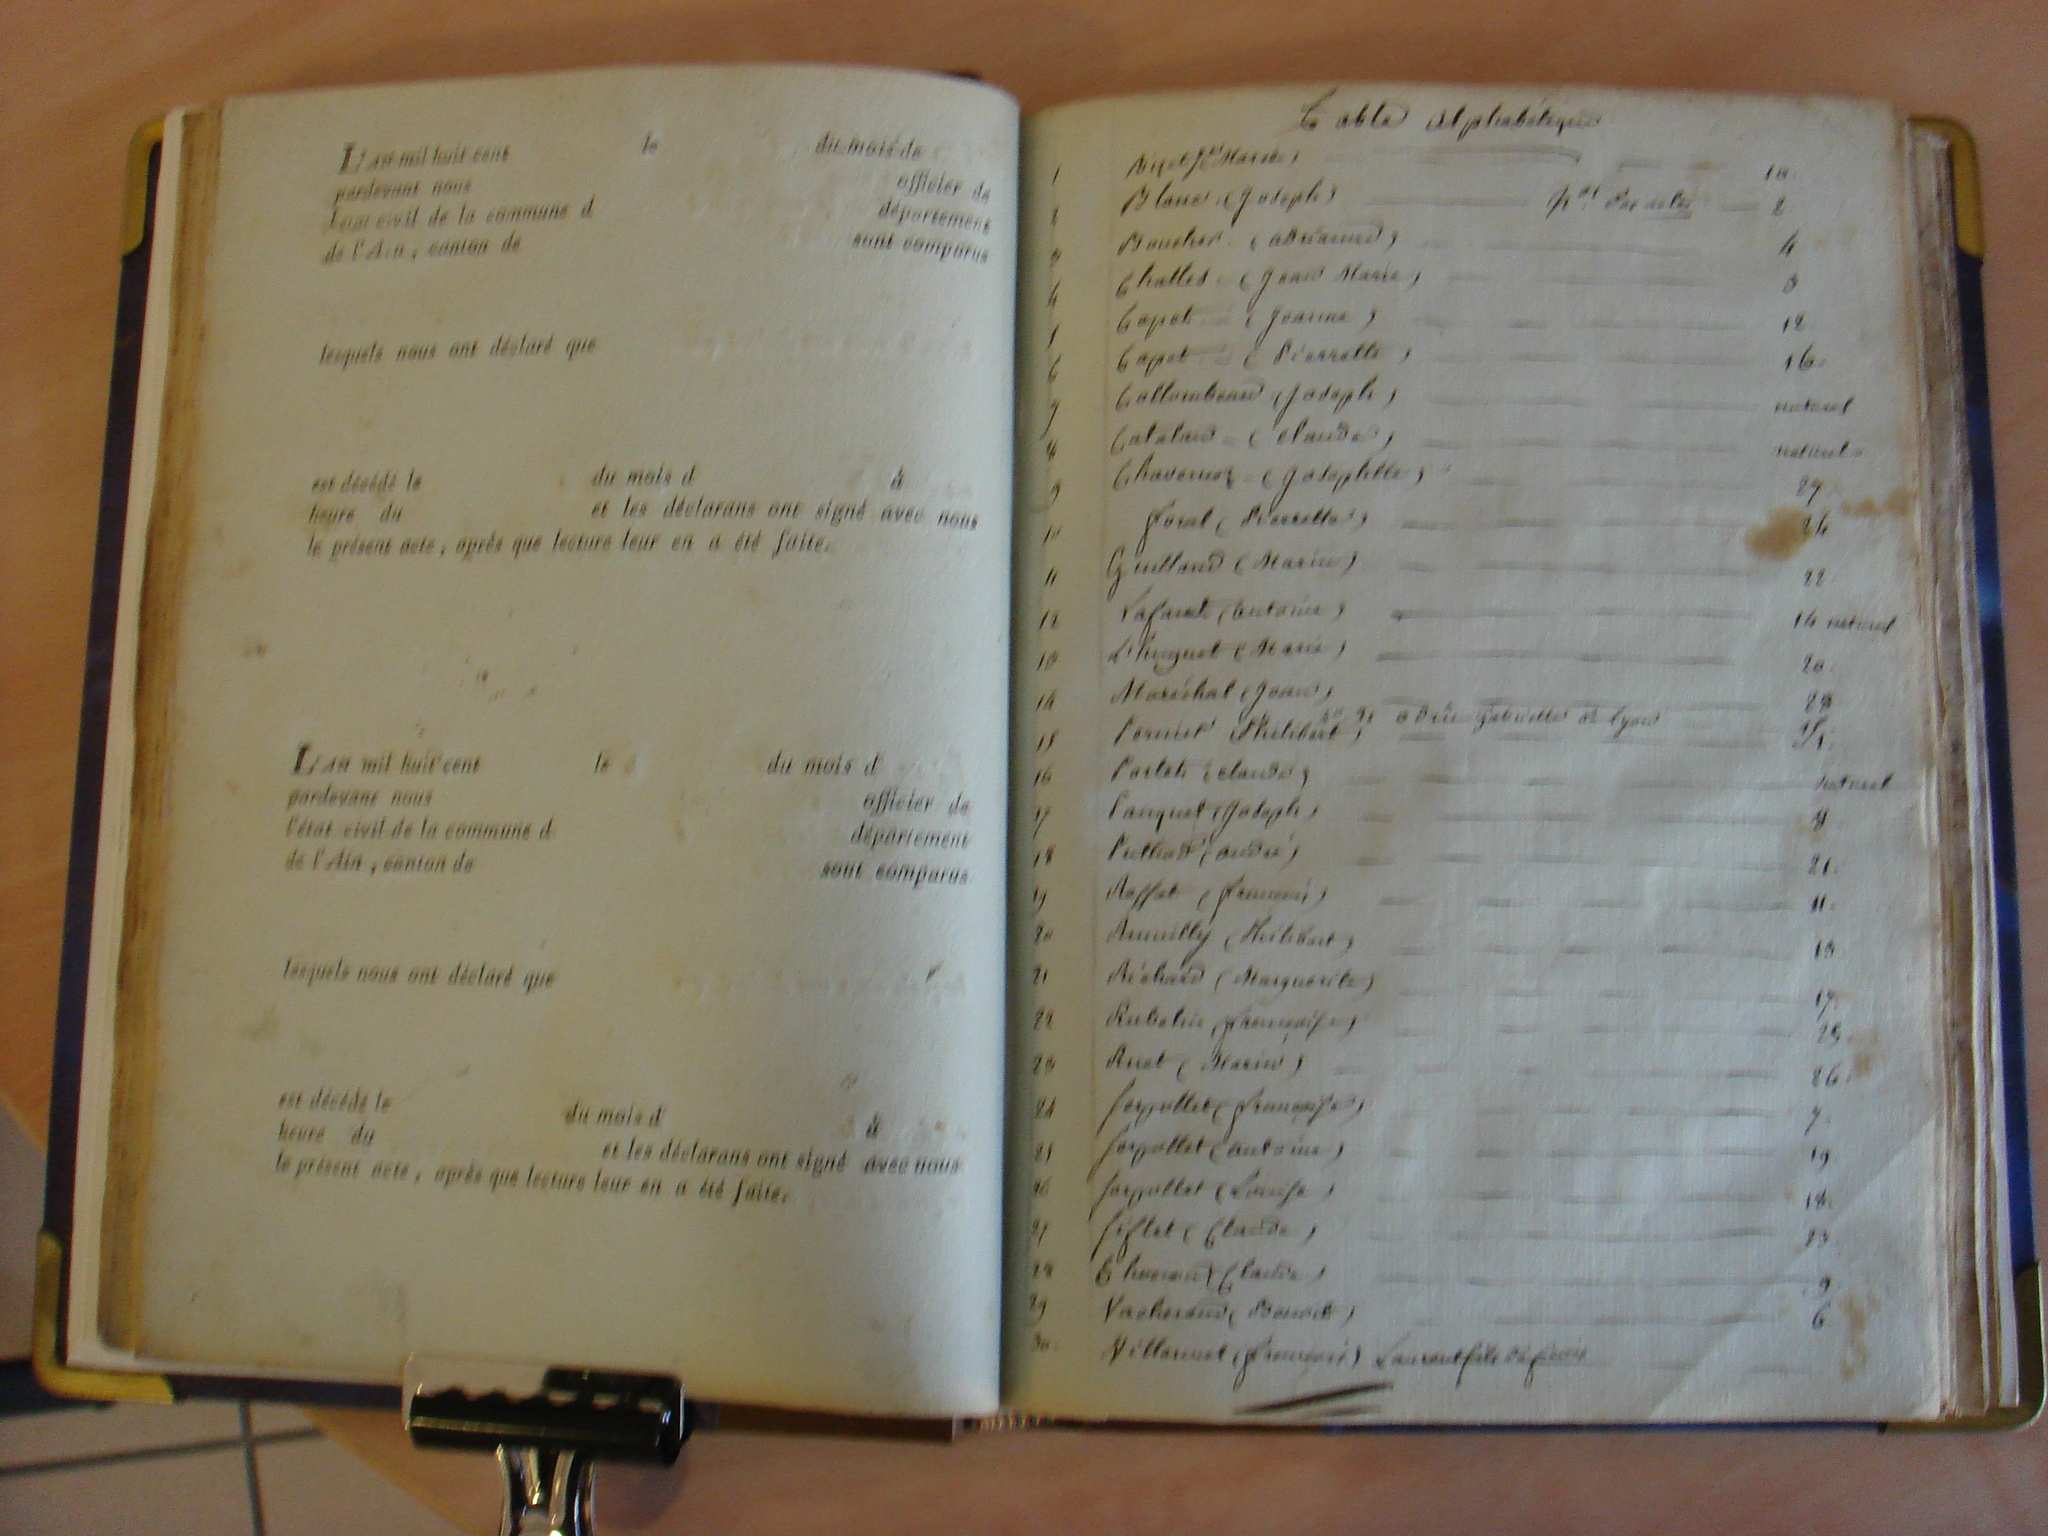 L'an mil huit cent le du mois de
pardevant nous officier de
l'état civil de la commune d département
de l'Ain, canton de sont comparus
lesquels nous ont déclaré que
est décédé le du mois d à
heure du et les déclarans ont signé avec nous
le présent acte, après que lecture leur en a été faite.
L'an mil huit cent le du mois d
pardevant nous officier de
l'état civil de la commune d département
de l'Ain, canton de sont comparus
lesquels nous ont déclaré que
est décédé le du mois d à
heure du et les déclarans ont signé avec nous
le présent acte, après que lecture leur en a été faite.
Table Alphabétique
1 Marie) 10.
2 Blanc (Joseph) nos des actes 2
3 Boucher (
4
4 Challes (Jean Marie) 3
5 Capet (Jeanne) 12
6 Capet (Pierrette) 16.
7 Collombeau (Joseph) naturel
8 Catalan (Claude) naturel
9 (Josephtte) 27.
10 Foral (Pierrette) 24
11 Guilland (Marie) 22
12 (antoine) 14 naturel
13 L'huguet (Marie) 20.
14 Maréchal (Jean) 28
15 Philibert) de Lyon
16 (claude) naturel
17 Pauget (Joseph) 8
18 (andré) 21.
19 Roffat (François) 11.
20 Rumilly (Philibert) 13
21 Richard (Marguerite) 17.
22 Rubelin (Françoise) 25.
23 Ruet (Marie) 26.
24 Serpollet (Françoise) 7.
25 Serpollet (antoine) 19
26 Serpollet (Louise) 18.
27 Siflet (Claude) 23
28 (Claude) 9
29 Vacherand (Benoit) 6
30. (François) Laurent fils